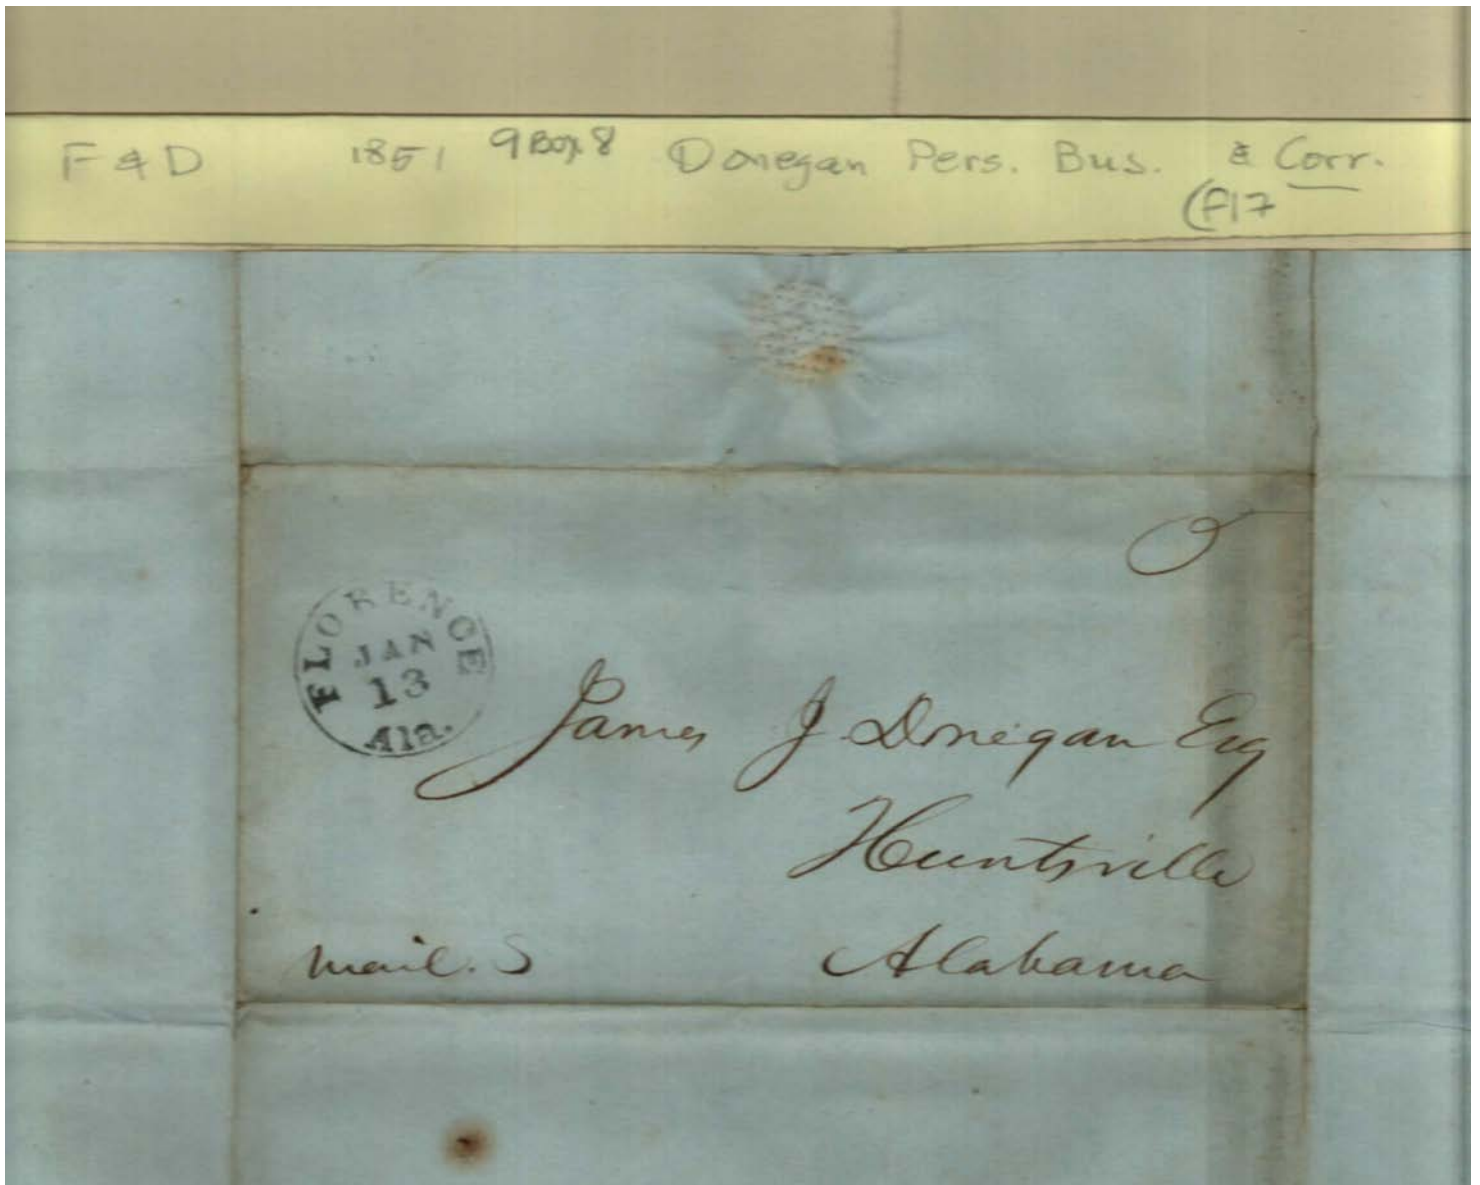 F & D 1851 9 Box 8 Donegan Pers. Bus. & Corr.
(F17
FLORENCE
JAN
13
Ala.
James J Donegan Esq
Huntsville
Alabama
Mail.